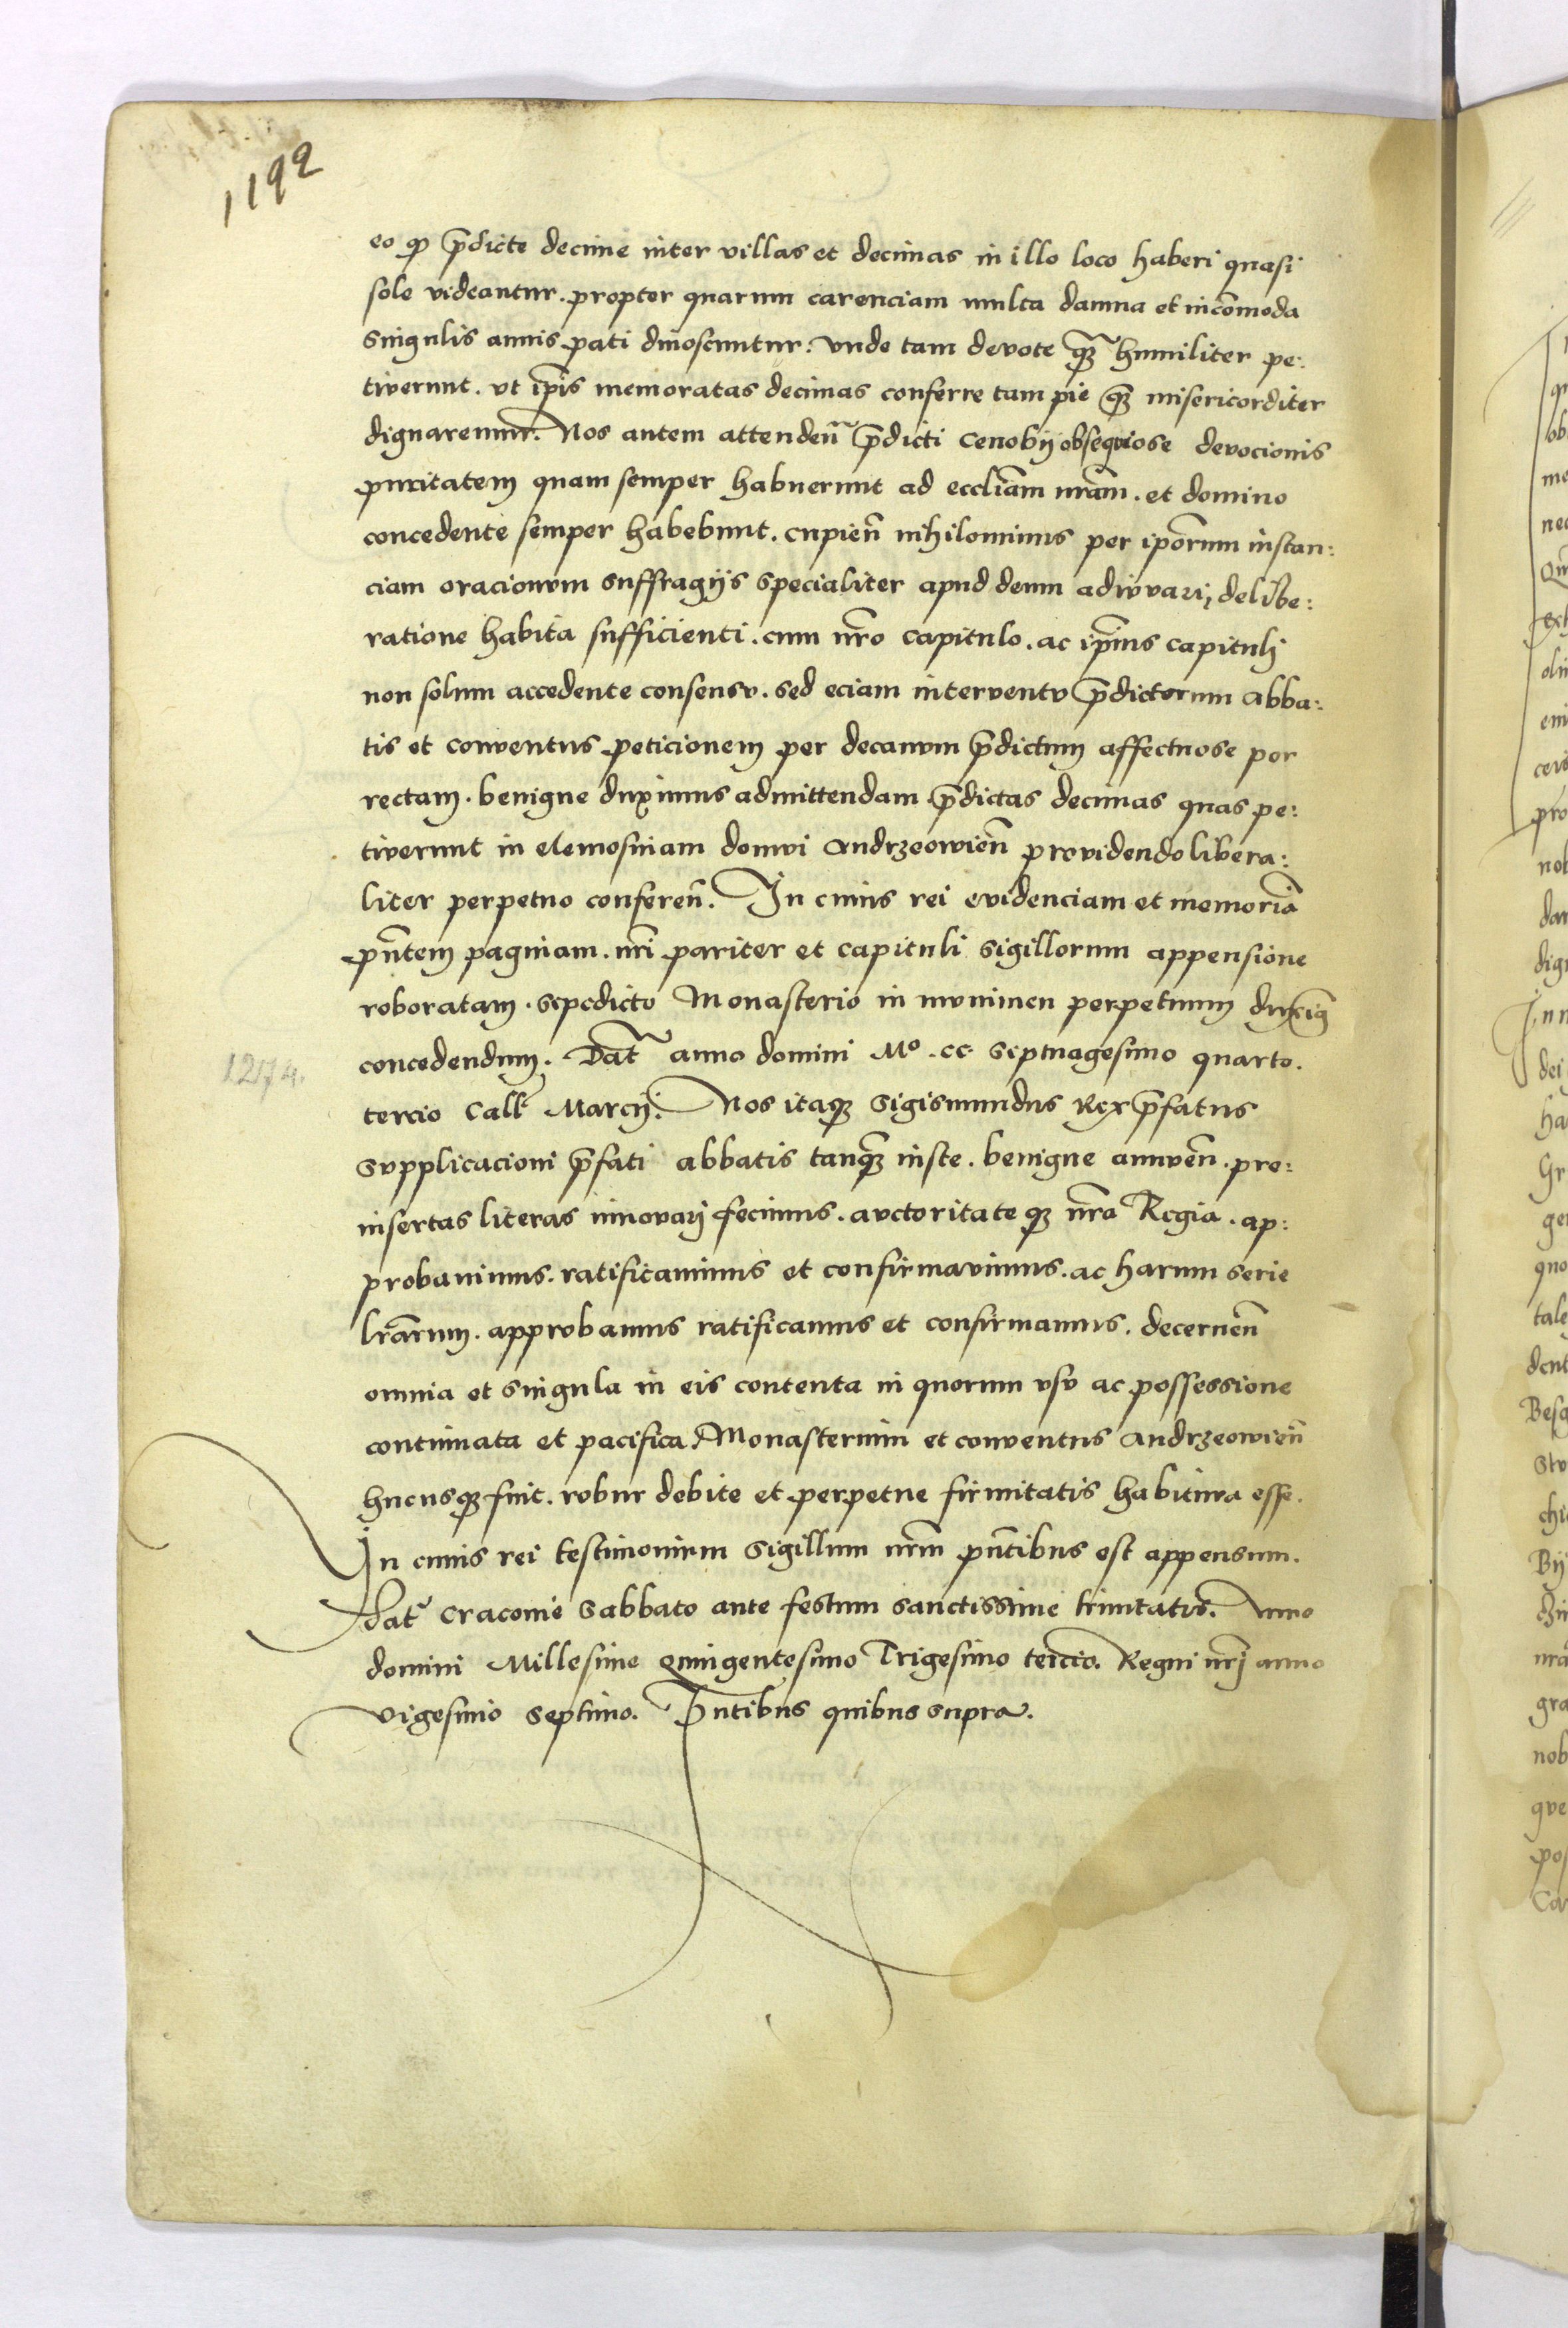 1192
eo qꝫ p̄dicte decime inter villas et decimas in illo loco haberi quasi
sole videantur. propter quarum carenciam multa damna et incōmoda
singulis annis pati dinoscuntur: vnde tam devote qꝫ humiliter pe:
tiverunt. vt ip̄is memoratas decimas conferre tam pie qꝫ misericorditer
dignaremur. Nos autem attendeñ p̄dicti cenobij obsequiose devocionis
puritatem quam semper habuerunt ad eccliām nrām. et domino
concedente semper habebunt. cupień nihilominus per ipōrum instan:
ciam oracionum suffragijs specialiter apud deum adiuvari, delibe:
ratione habita sufficienti. cum nr̄o capitulo. ac ip̄ius capituli
non solum accedente consensv. sed eciam interventv p̄dictorum abba:
tis et conventus peticionem per decanum p̄dictum affectuose por
rectam. benigne duximus admittendam p̄dictas decimas quas pe:
tiverunt in elemosinam domvi Andrzeowień providendo libera:
liter perpetuo confereñ. In cuius rei evidenciam et memoriā
pn̄tem paginam. nri pariter et capituli sigillorum appensione
roboratam. sepedicto Monasterio in mvnimen perpetuum duxim̄
concedendum. Dat̄ anno domini Mº. cc. septuagesimo quarto.
1274.
tercio Call̄ Marcij. Nos itaqꝫ Sigismundus Rex p̄fatus
svpplicacioni p̄fati abbatis tanqꝫ iuste. benigne annueñ. pre:
insertas literas innovari fecimus. avctoritate qꝫ nr̄a Regia. ap:
probavimus. ratificavimus et confirmavimus. ac harum serie
lrārum. approbamus ratificamus et confirmamus. decerneñ
omnia et singula in eis contenta in quorum vsv ac possessione
continuata et pacifica Monasterium et conventus Andrzeowień
hucusqꝫ fuit. robur debite et perpetue firmitatis habitura esse.
In cuius rei testimonium Sigillum nrm̄ pn̄tibus est appensum.
Dat̄ Cracovie Sabbato ante festum sanctissime trinitatis. Anno
domini Millesimo Quingentesimo Trigesimo tercio. Regni nr̄j anno
vigesimo septimo. P̄ntibus quibus supra.